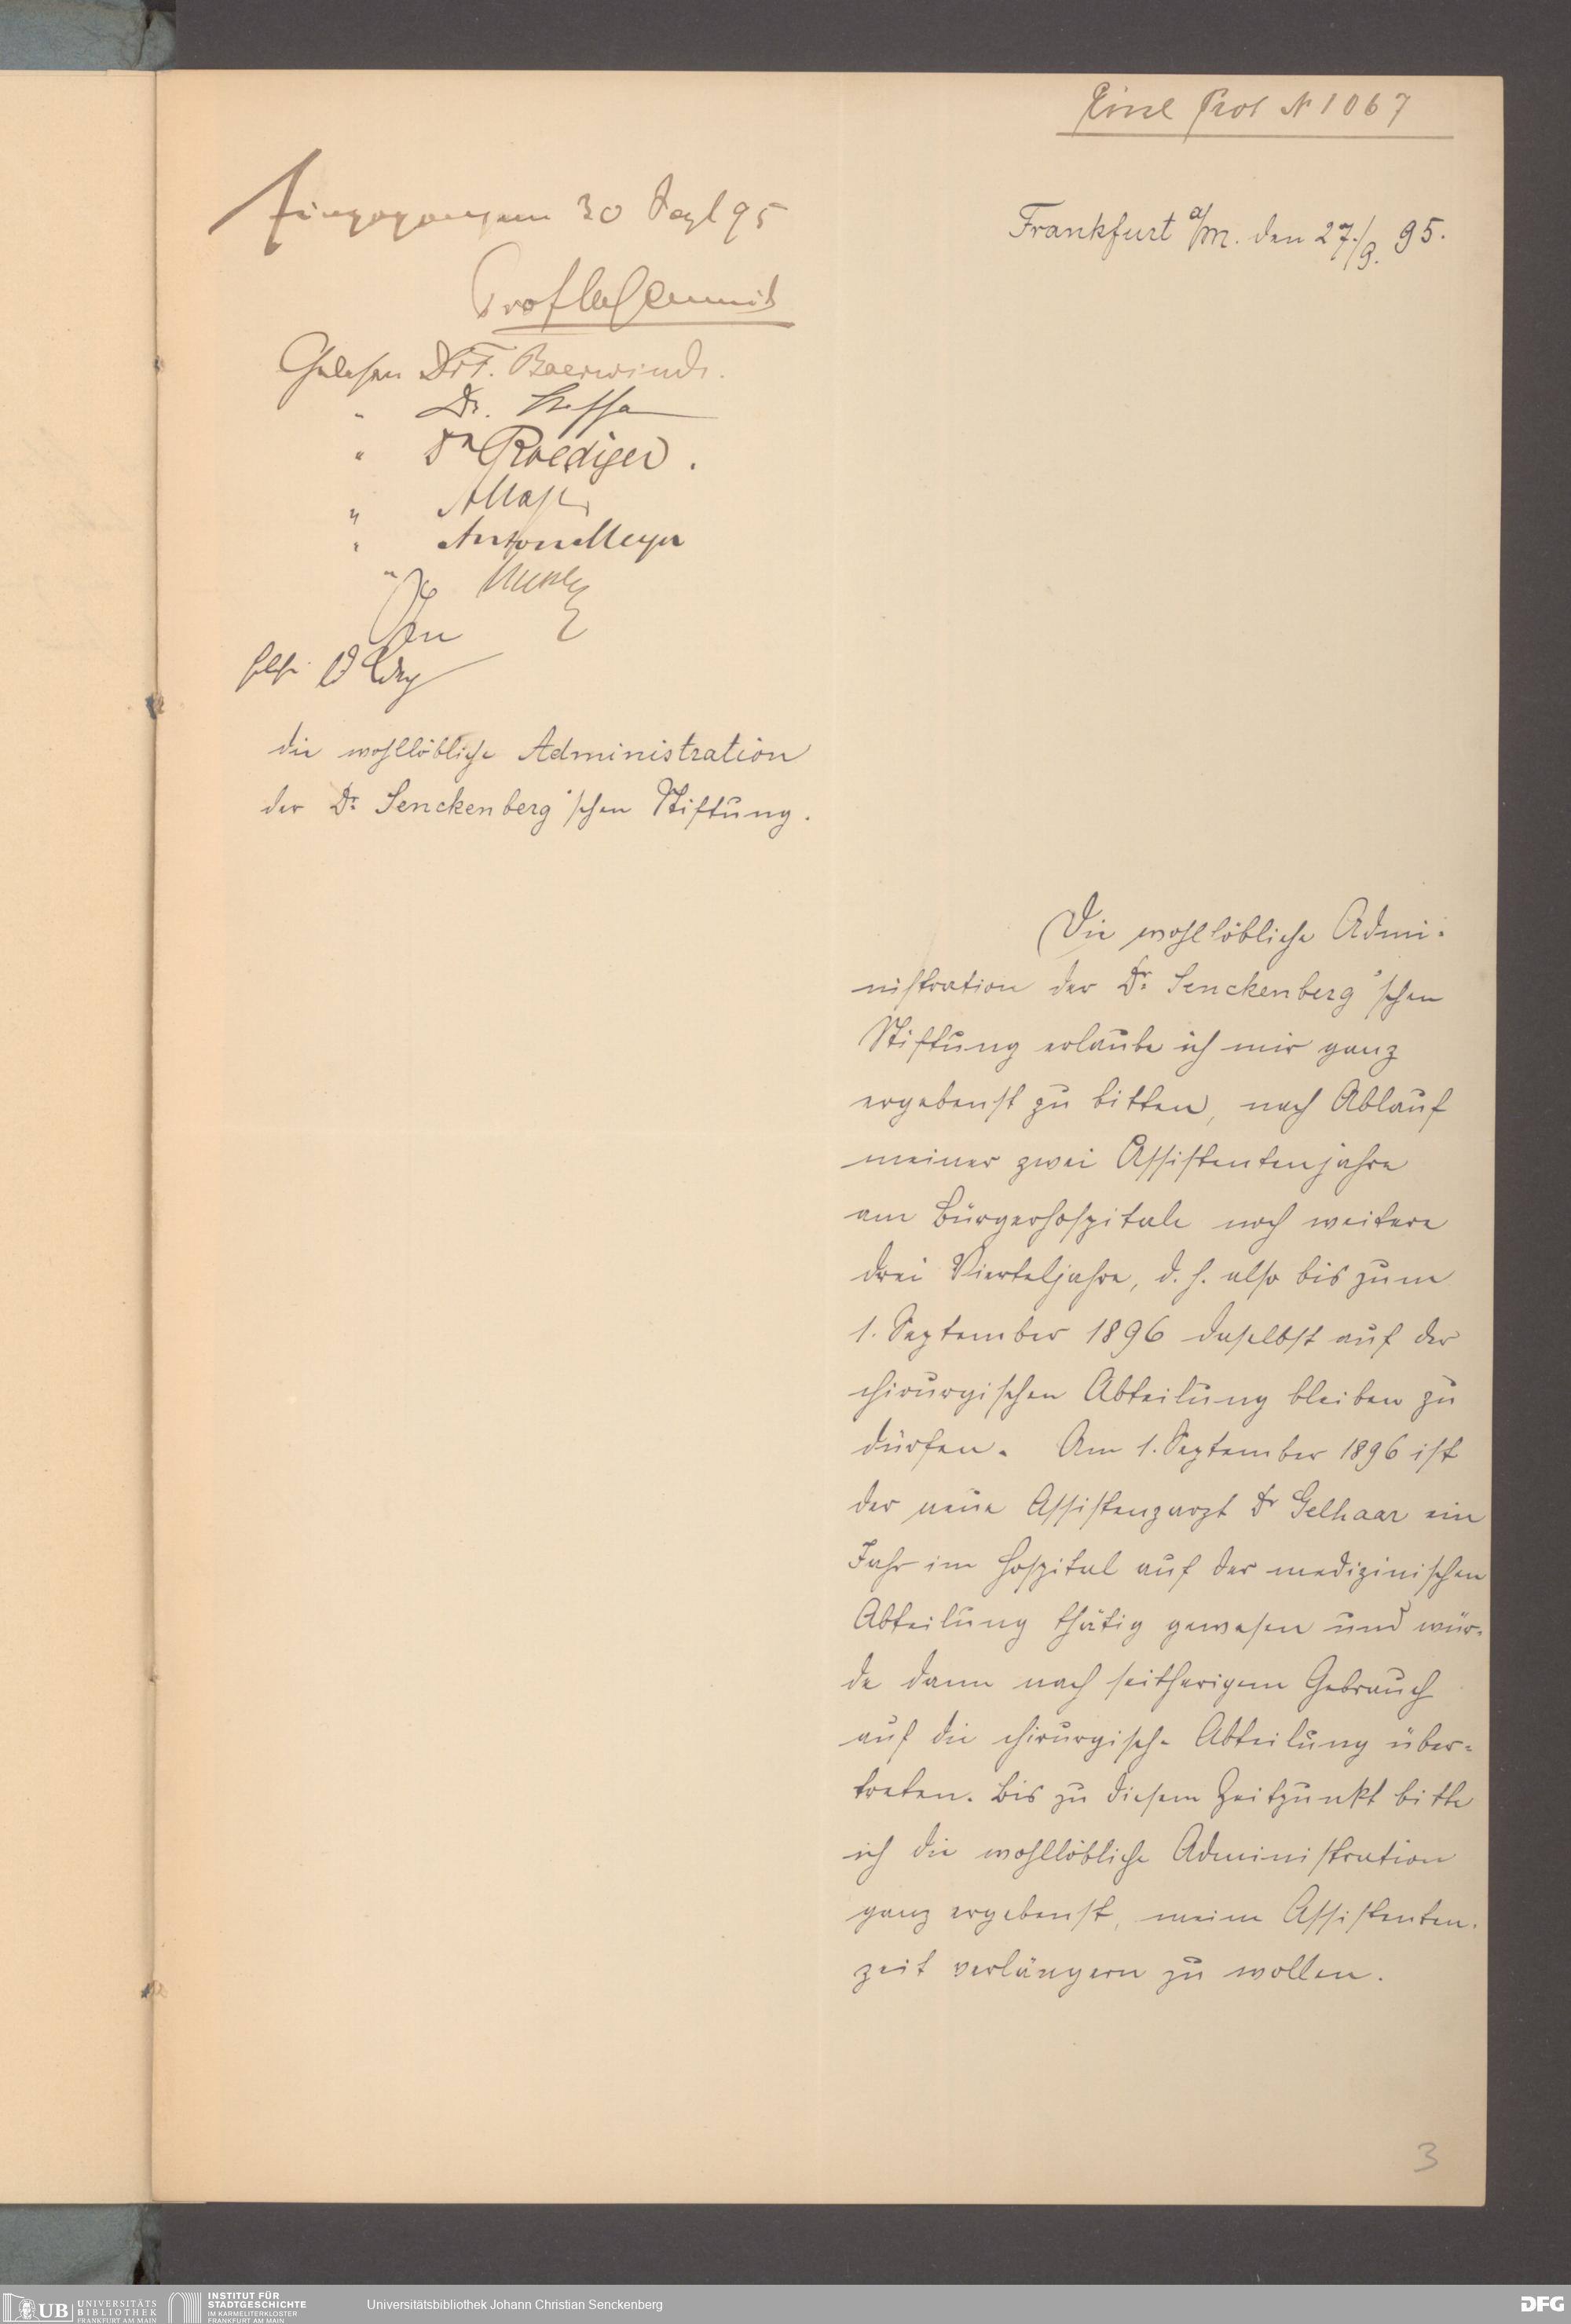 Einl Prot № 1067
Frankfurt a/M. den 27./9. 95.
Eingegangen 30 Sept 95
Gelesen Dr F. Baerwindt.
" Dr.
" Dr Roediger.
"
" Anton Meyer
"
die wohllöbliche Administration
der Dr. Senckenberg'schen Stiftung.
Die wohllöbliche Admi-
nistration der Dr. Senckenberg'schen
Stiftung erlaube ich mir ganz
ergebenst zu bitten, nach Ablauf
meiner zwei Assistentenjahre
am Bürgerhospitale noch weitere
drei Vierteljahre, d. h. also bis zum
1. September 1896 daselbst auf der
chirurgischen Abteilung bleiben zu
dürfen. Am 1. September 1896 ist
der neue Assistenzarzt Dr Gelhaar ein
Jahr im Hospital auf der medizinischen
Abteilung thätig gewesen und wür-
de dann nach seitherigem Gebrauch
auf die chirurgische Abteilung über-
treten. Bis zu diesem Zeitpunkt bitte
ich die wohllöbliche Administration
ganz ergebenst, meine Assistenten-
zeit verlängern zu wollen.
3
UB UNIVERSITÄTS
BIBLIOTHEK
FRANKFURT AM MAIN
INSTITUT FÜR
STADTGESCHICHTE
IM KARMELITERKLOSTER
FRANKFURT AM MAIN
Universitätsbibliothek Johann Christian Senckenberg
DFG